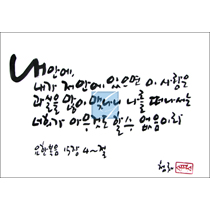 내 안에,
내가 저 안에 있으면 이 사람은
과실을 많이 맺나니 나를 떠나서는
너희가 아무것도 할 수 없음이라
요한복음 15장 4~절